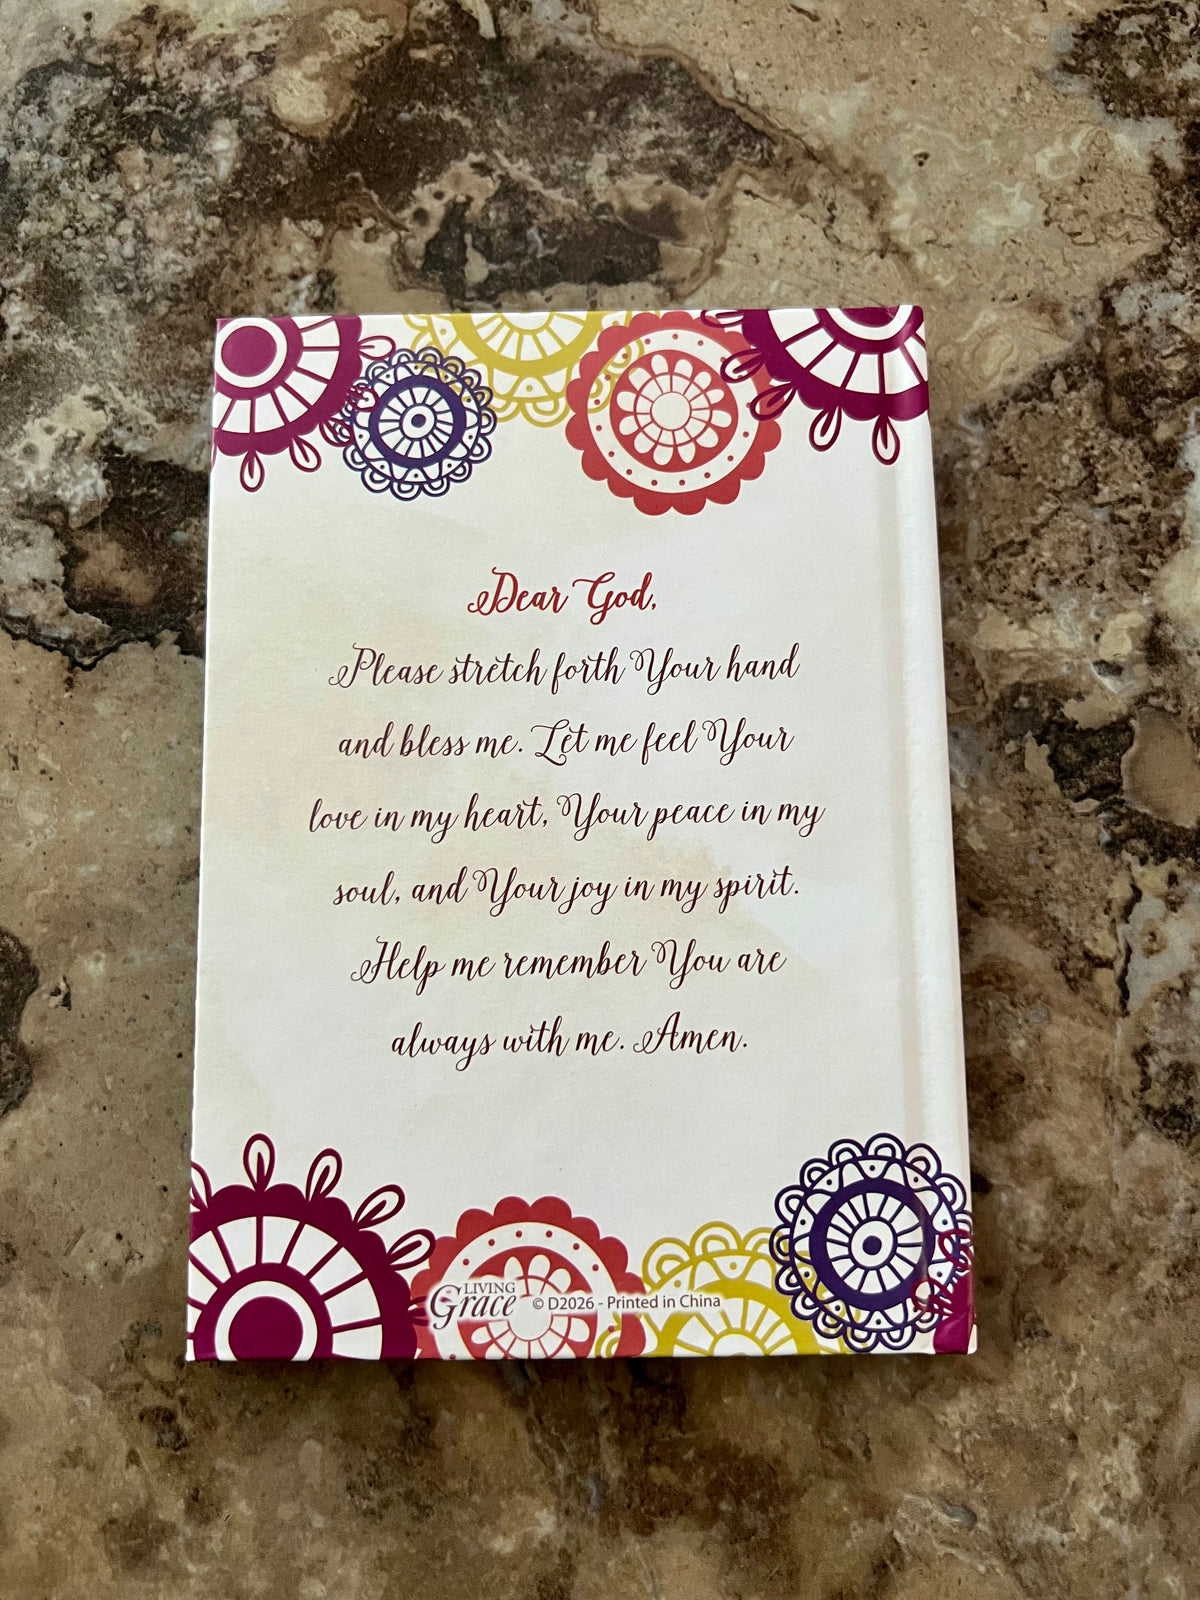 Dear God,
Please stretch forth Your hand
and bless me. Let me feel Your
love in my heart, Your peace in my
soul, and Your joy in my spirit.
Help me remember You are
always with me. Amen.
LIVING
Grace © D2026 - Printed in China